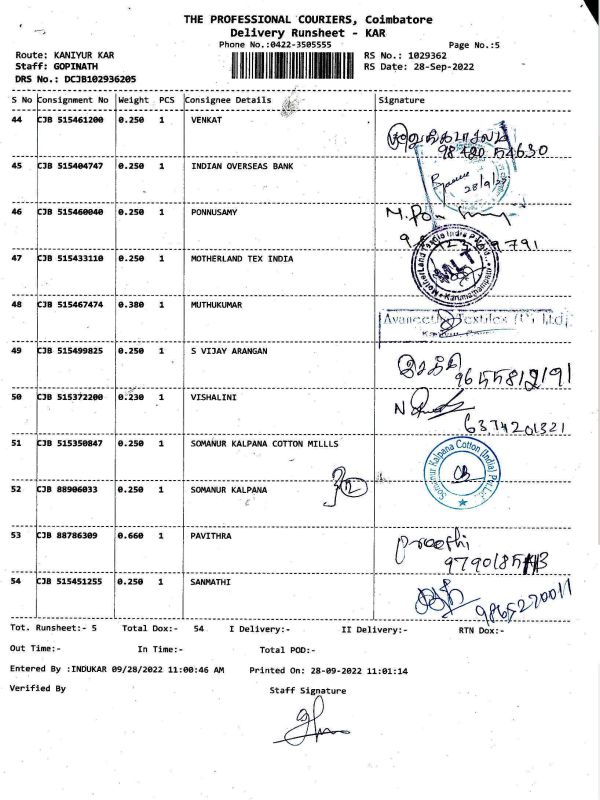 THE PROFESSIONAL COURIERS, Coimbatore
Delivery Runsheet - KAR
Phone No.:0422-3505555
Page No.:5
Route: KANIYUR KAR
RS No.: 1029362
Staff: GOPINATH
RS Date: 28-Sep-2022
DRS No.: DCJB102936205
S No Consignment No Weight PCS Consignee Details Signature
44 CJB 515461200 0.250 1 VENKAT
45 CJB 515404747 0.250 1 INDIAN OVERSEAS BANK
28/9/22
46 CJB 515460040 0.250 1 PONNUSAMY
47 CJB 515433110 0.250 1 MOTHERLAND TEX INDIA
MLT
48 CJB 515467474 0.380 1 MUTHUKUMAR
Avaneetha Textiles (P) Ltd
49 CJB 515499825 0.250 1 S VIJAY ARANGAN
சக்தி
9655812191
50 CJB 515372200 0.230 1 VISHALINI
6374201321
51 CJB 515350847 0.250 1 SOMANUR KALPANA COTTON MILLLS
Somanur Kalpana Cotton (India) Pvt Ltd
52 CJB 88906033 0.250 1 SOMANUR KALPANA
53 CJB 88786309 0.660 1 PAVITHRA
preethi
54 CJB 515451255 0.250 1 SANMATHI
9865270011
Tot. Runsheet:- 5 Total Dox:- 54 I Delivery:- II Delivery:- RTN Dox:-
Out Time:- In Time:- Total POD:-
Entered By :INDUKAR 09/28/2022 11:00:46 AM Printed On: 28-09-2022 11:01:14
Verified By Staff Signature